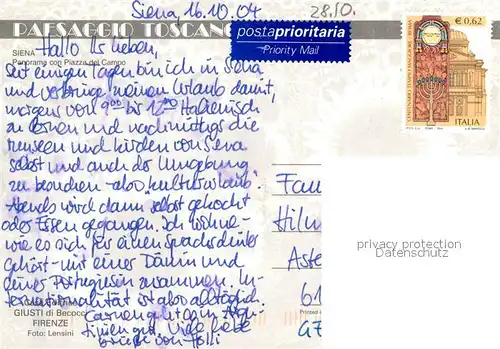 Siena, 16.10.04
28.10.
PAESAGGIO TOSCANO
postaprioritaria
Priority Mail
€ 0,62
ITALIA
Hallo Ihr Lieben
SIENA
Panorama con Piazza del Campo
Seit einigen Tagen bin ich in Siena
und verbringe meinen Urlaub damit,
morgens von 9⁰⁰ bis 12³⁰ Italienisch
zu lernen und nachmittags die
Museen und Kirchen von Siena
selbst und auch der Umgebung
zu besuchen - also "Kultururlaub".
Abends wird dann selbst gekocht
oder Essen gegangen. Ich wohne -
wie es sich für einen Sprachschüler
gehört - mit einer Dänin und
einer Portugiesin zusammen. In-
ternationalität ist also alltäglich.
GIUSTI di Becocci
FIRENZE
Foto: Lensini
Carmen geht
gut. Viele liebe
Grüße von
Fam
Hilm
Aste
61
Printed in
privacy protection
Datenschutz